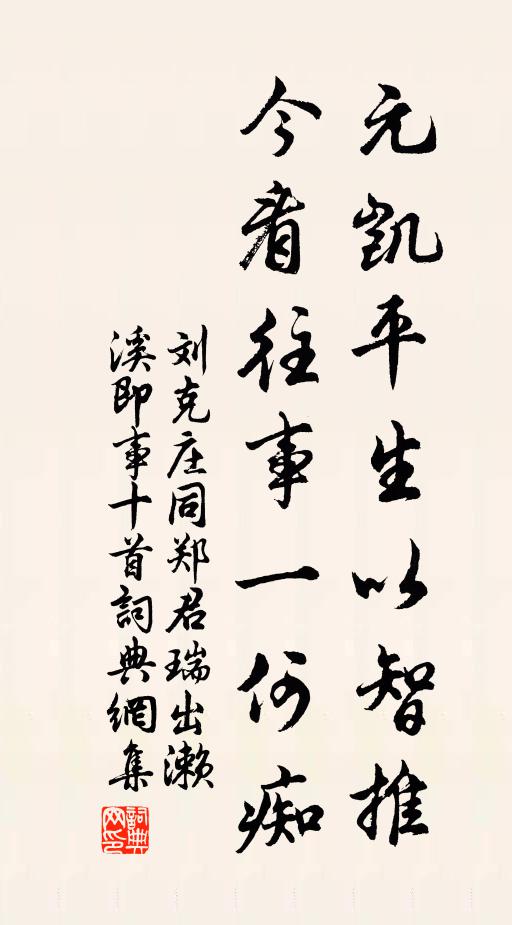 元凯平生以智推
今看往事一何痴
刘克庄同郑君瑞出濑
溪即事十首詞典網集
詞典網印